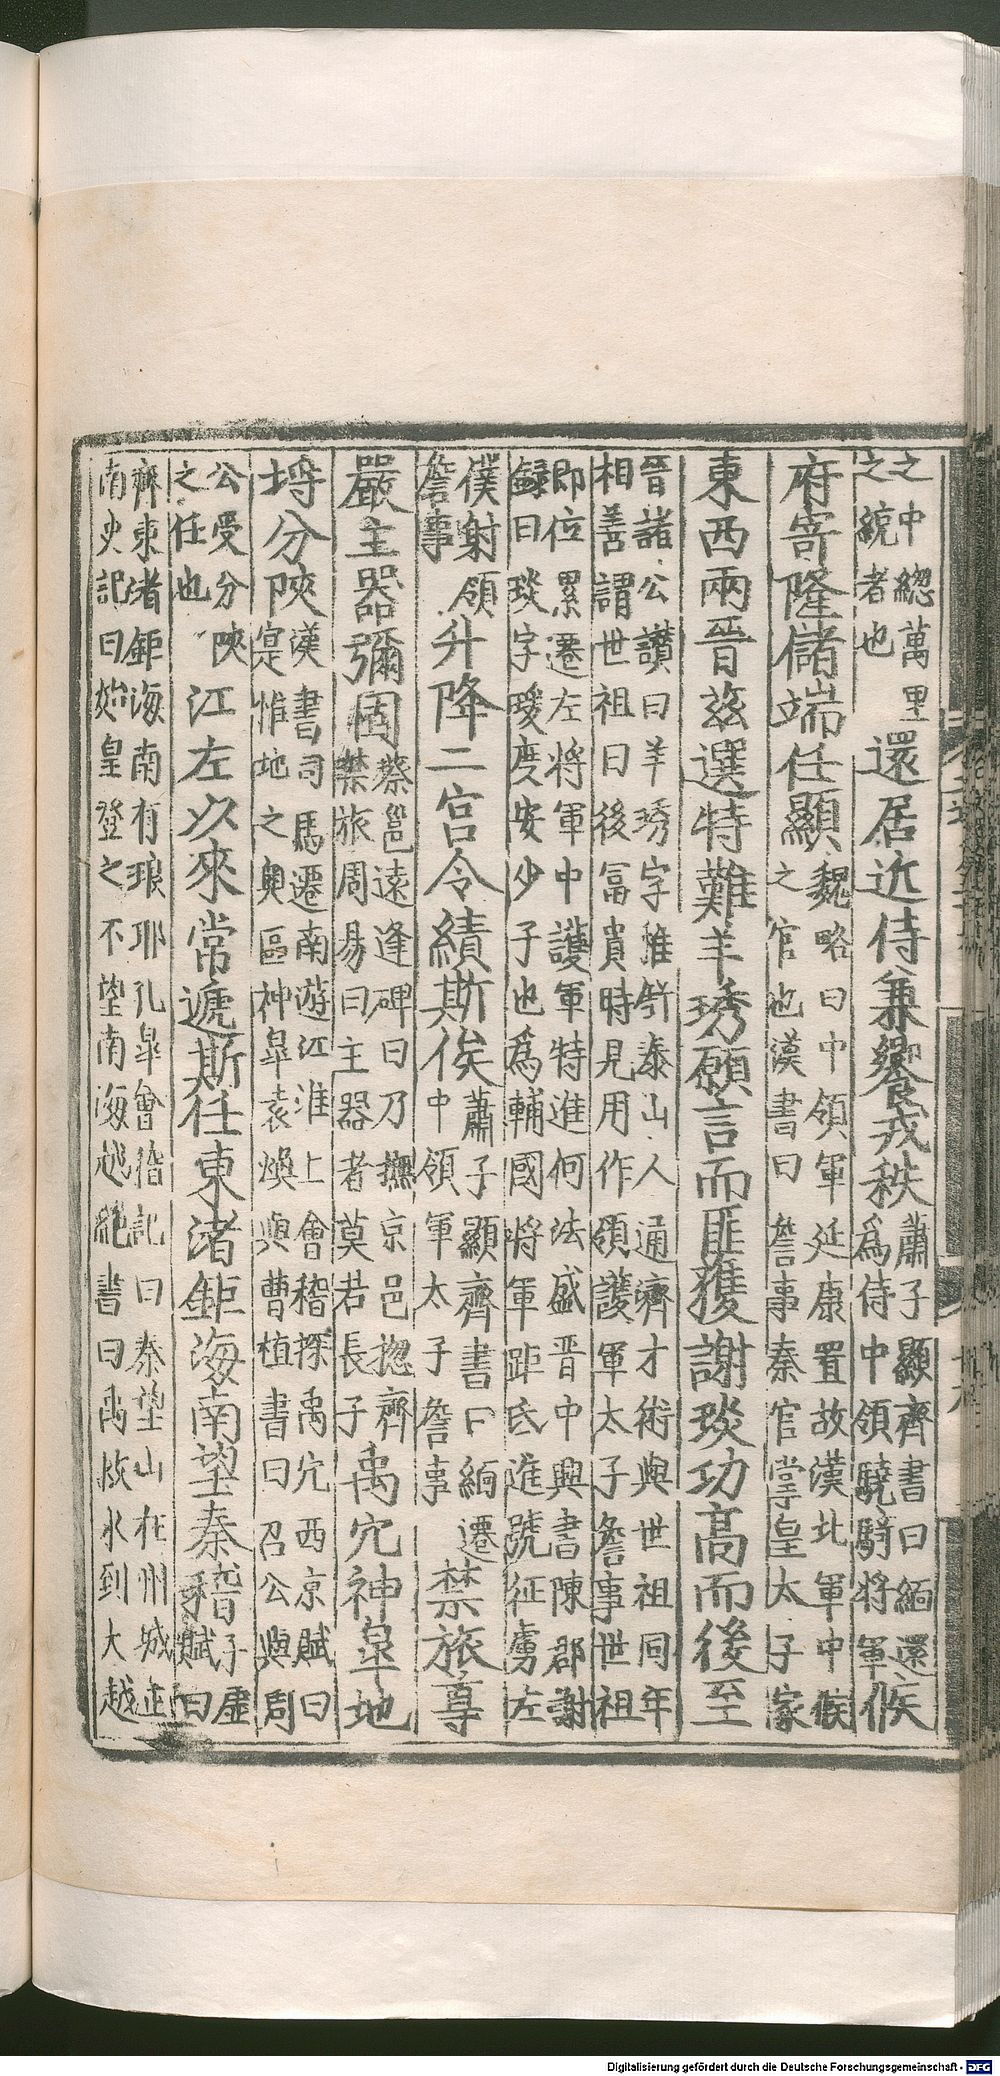 之中緫萬里
之統者也 還居近侍兼饗戎秩 蕭子顯齊書曰緬還
爲侍中領驍騎將軍 候
府寄隆儲端任顯 魏略曰中領軍延康置故漢北軍中候
之官也漢書曰詹事秦官掌皇太子家
東西兩晉兹選特難羊琇願言而匪獲謝琰功高而後至
晉諸公讚曰羊琇字雅舒泰山人通濟才術與世祖同年
相善謂世祖曰後冨貴時見用作領護軍太子詹事世祖
即位累遷左將軍中護軍特進何法盛晉中興書陳郡謝
録曰琰字瑗度安少子也爲輔國將軍距氐進號征虜左
僕射領
詹事 升降二宫令績斯俟 蕭子顯齊書曰緬遷
中領軍太子詹事 禁旅尊
嚴主器彌固 蔡邕遠逢碑曰乃撫京邑揔齊
禁旅周易曰主器者莫若長子 禹穴神臯地
埒分陝 漢書司馬遷南游江淮上會稽探禹穴西京賦曰
寔惟地之奥區神臯袁煥與曹植書曰召公與周
公受分陝
之任也 江左以來常遞斯任東渚鉅海南望秦稽 子虛
賦曰
齊東渚鉅海南有琅耶孔皐會稽記曰秦望山在州城正
南史記曰始皇登之不望南海越絶書曰禹救水到大越
Digitalisierung gefördert durch die Deutsche Forschungsgemeinschaft - DFG